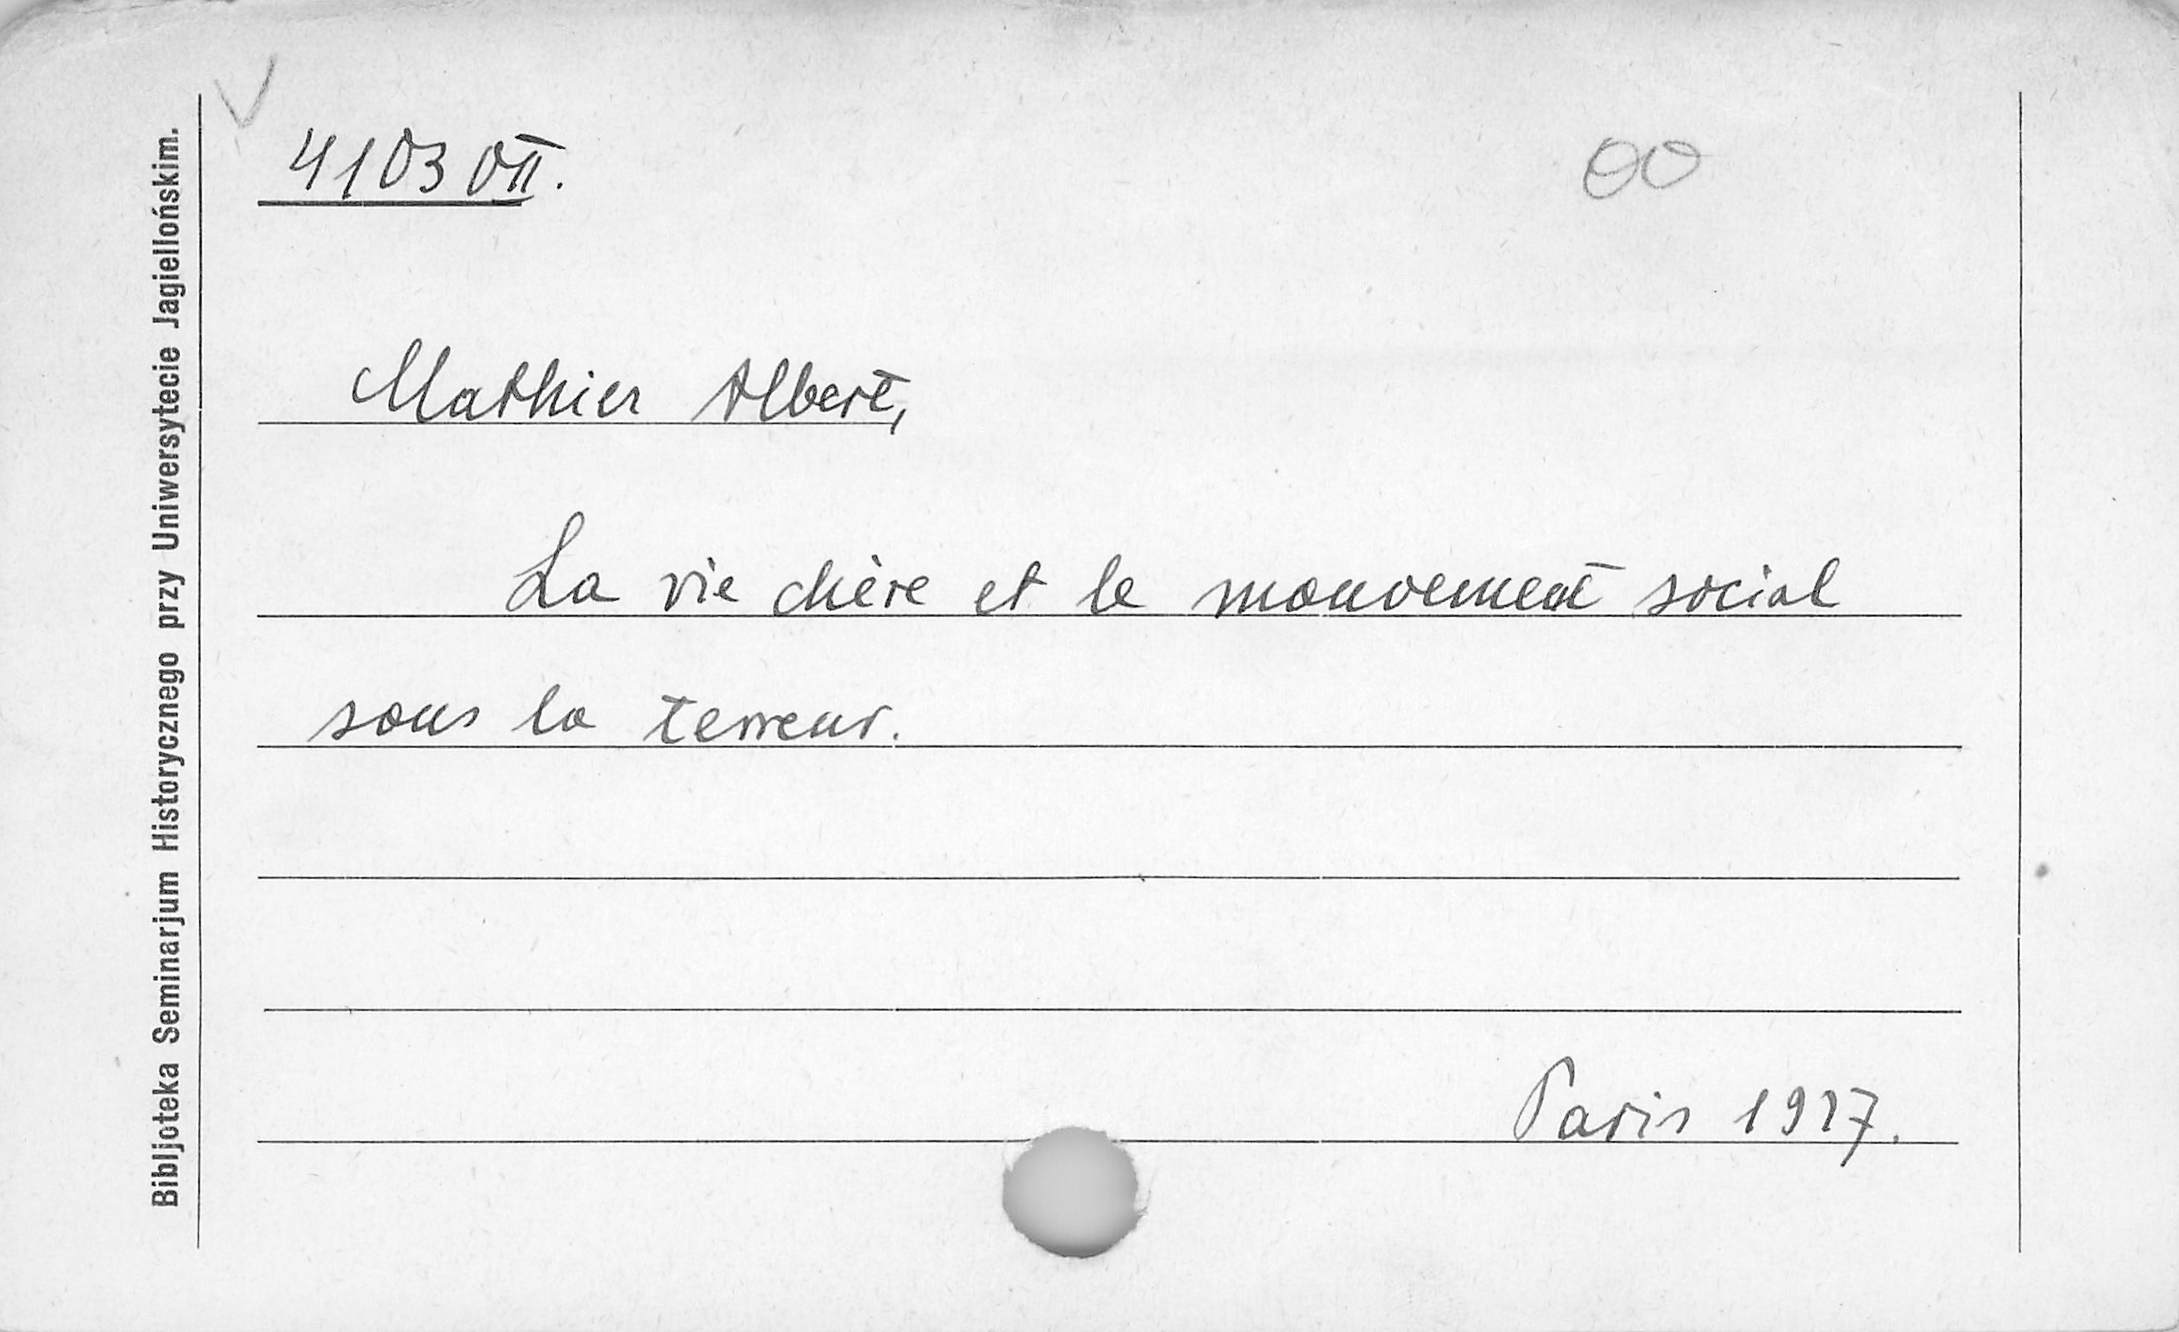 4103 VII.
OO
Mathier Albert,
La vie chère et le mouvement social
sous la terreur.
Paris 1927.
Bibljoteka Seminarjum Historycznego przy Uniwersytecie Jagiellońskim.